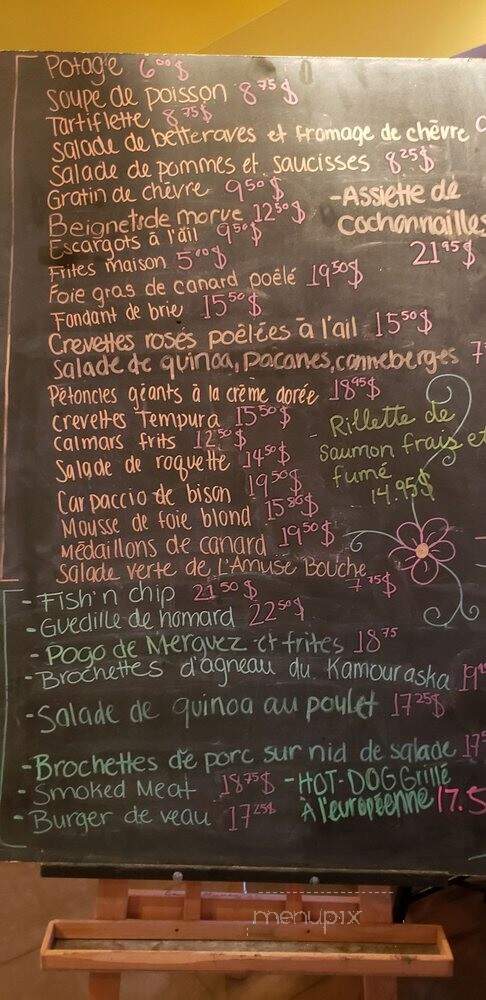 Potage 6⁰⁰$
Soupe de poisson 8⁷⁵$
Tartiflette 8⁷⁵$
Salade de betteraves et fromage de chèvre
Salade de pommes et saucisses 8²⁵$
Gratin de chèvre 9⁵⁰$
Beignets de morue 12⁵⁰$
Escargots à l'ail 9⁵⁰$
Frites maison 5⁰⁰$
- Assiette de
Cochonnailles
21⁹⁵$
Foie gras de canard poêlé 19⁵⁰$
Fondant de brie 15⁵⁰$
Crevettes rosés poêlées à l'ail 15⁵⁰$
Salade de quinoa, pacanes, canneberges
Pétoncles géants à la crème dorée 18⁹⁵$
Crevettes Tempura 15⁵⁰$
Calmars frits 12⁵⁰$
Salade de roquette 14⁵⁰$
Carpaccio de bison 19⁵⁰$
Mousse de foie blond 15⁸⁶$
Médaillons de canard 19⁵⁰$
Salade verte de L'Amuse Bouche 7⁷⁵$
- Rillette de
Saumon frais et
fumé
14.95$
- Fish'n chip 21⁵⁰$
- Guedille de homard 22⁵⁰$
- Pogo de Merguez et frites 18⁷⁵
- Brochettes d'agneau du Kamouraska
- Salade de quinoa au poulet 17²⁵$
- Brochettes de porc sur nid de salade
- Smoked Meat 18⁷⁵$
- Burger de veau 17²⁵$
- HOT-DOG Grillé
À l'européenne 17.5
menupix